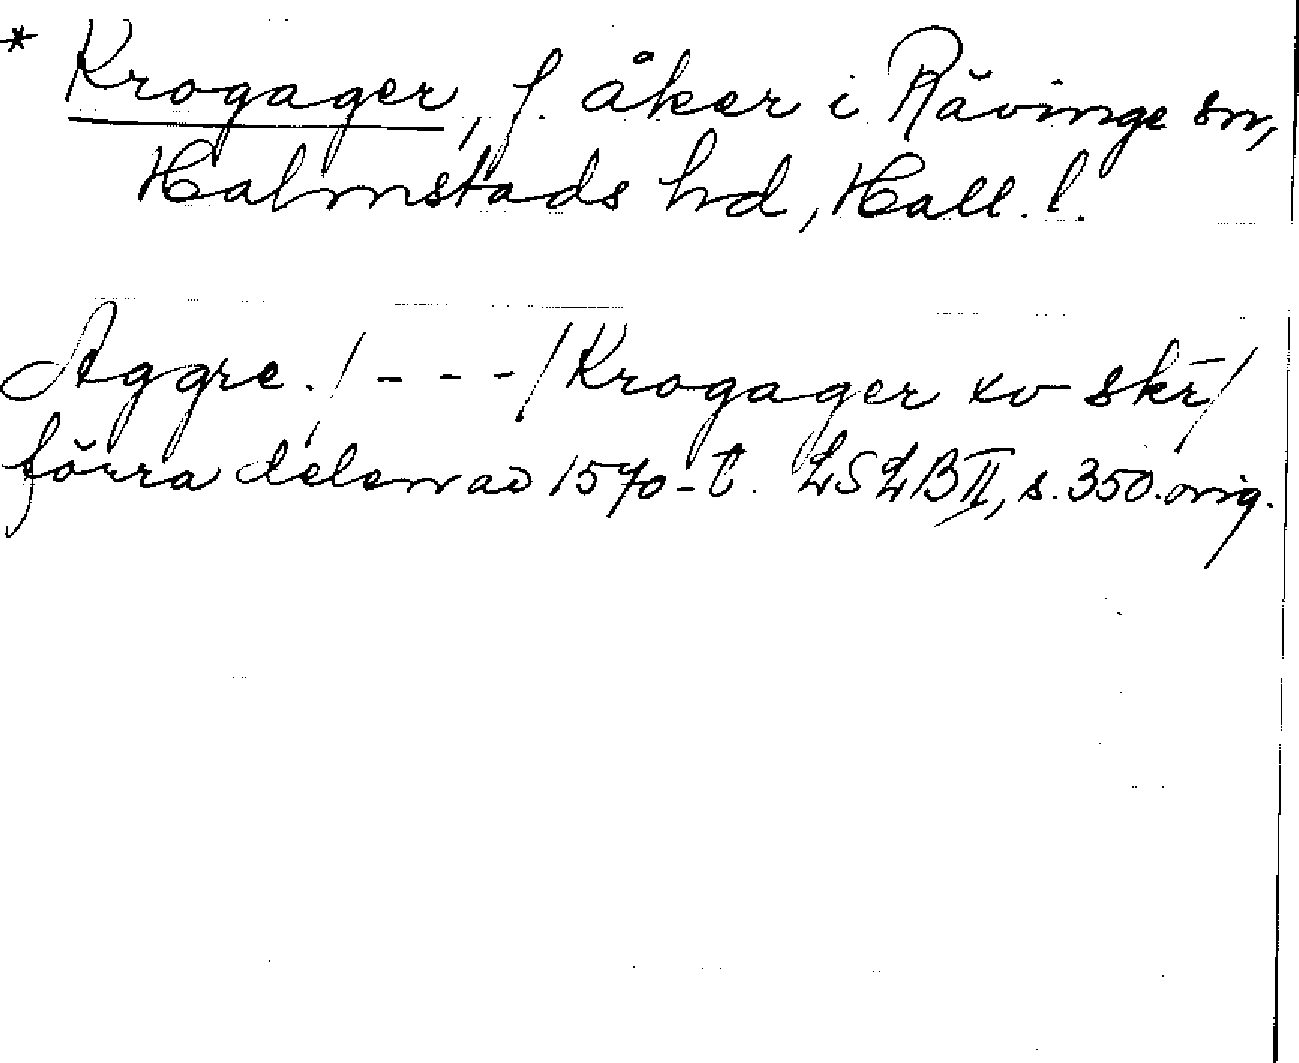 * Krogager, f. åker i Rävinge sn,
Halmstads hd, Hall. l.
Aggre. / - - - / Krogager xv skr /
förra delen av 1570-t. LSLB II, s. 350. orig.